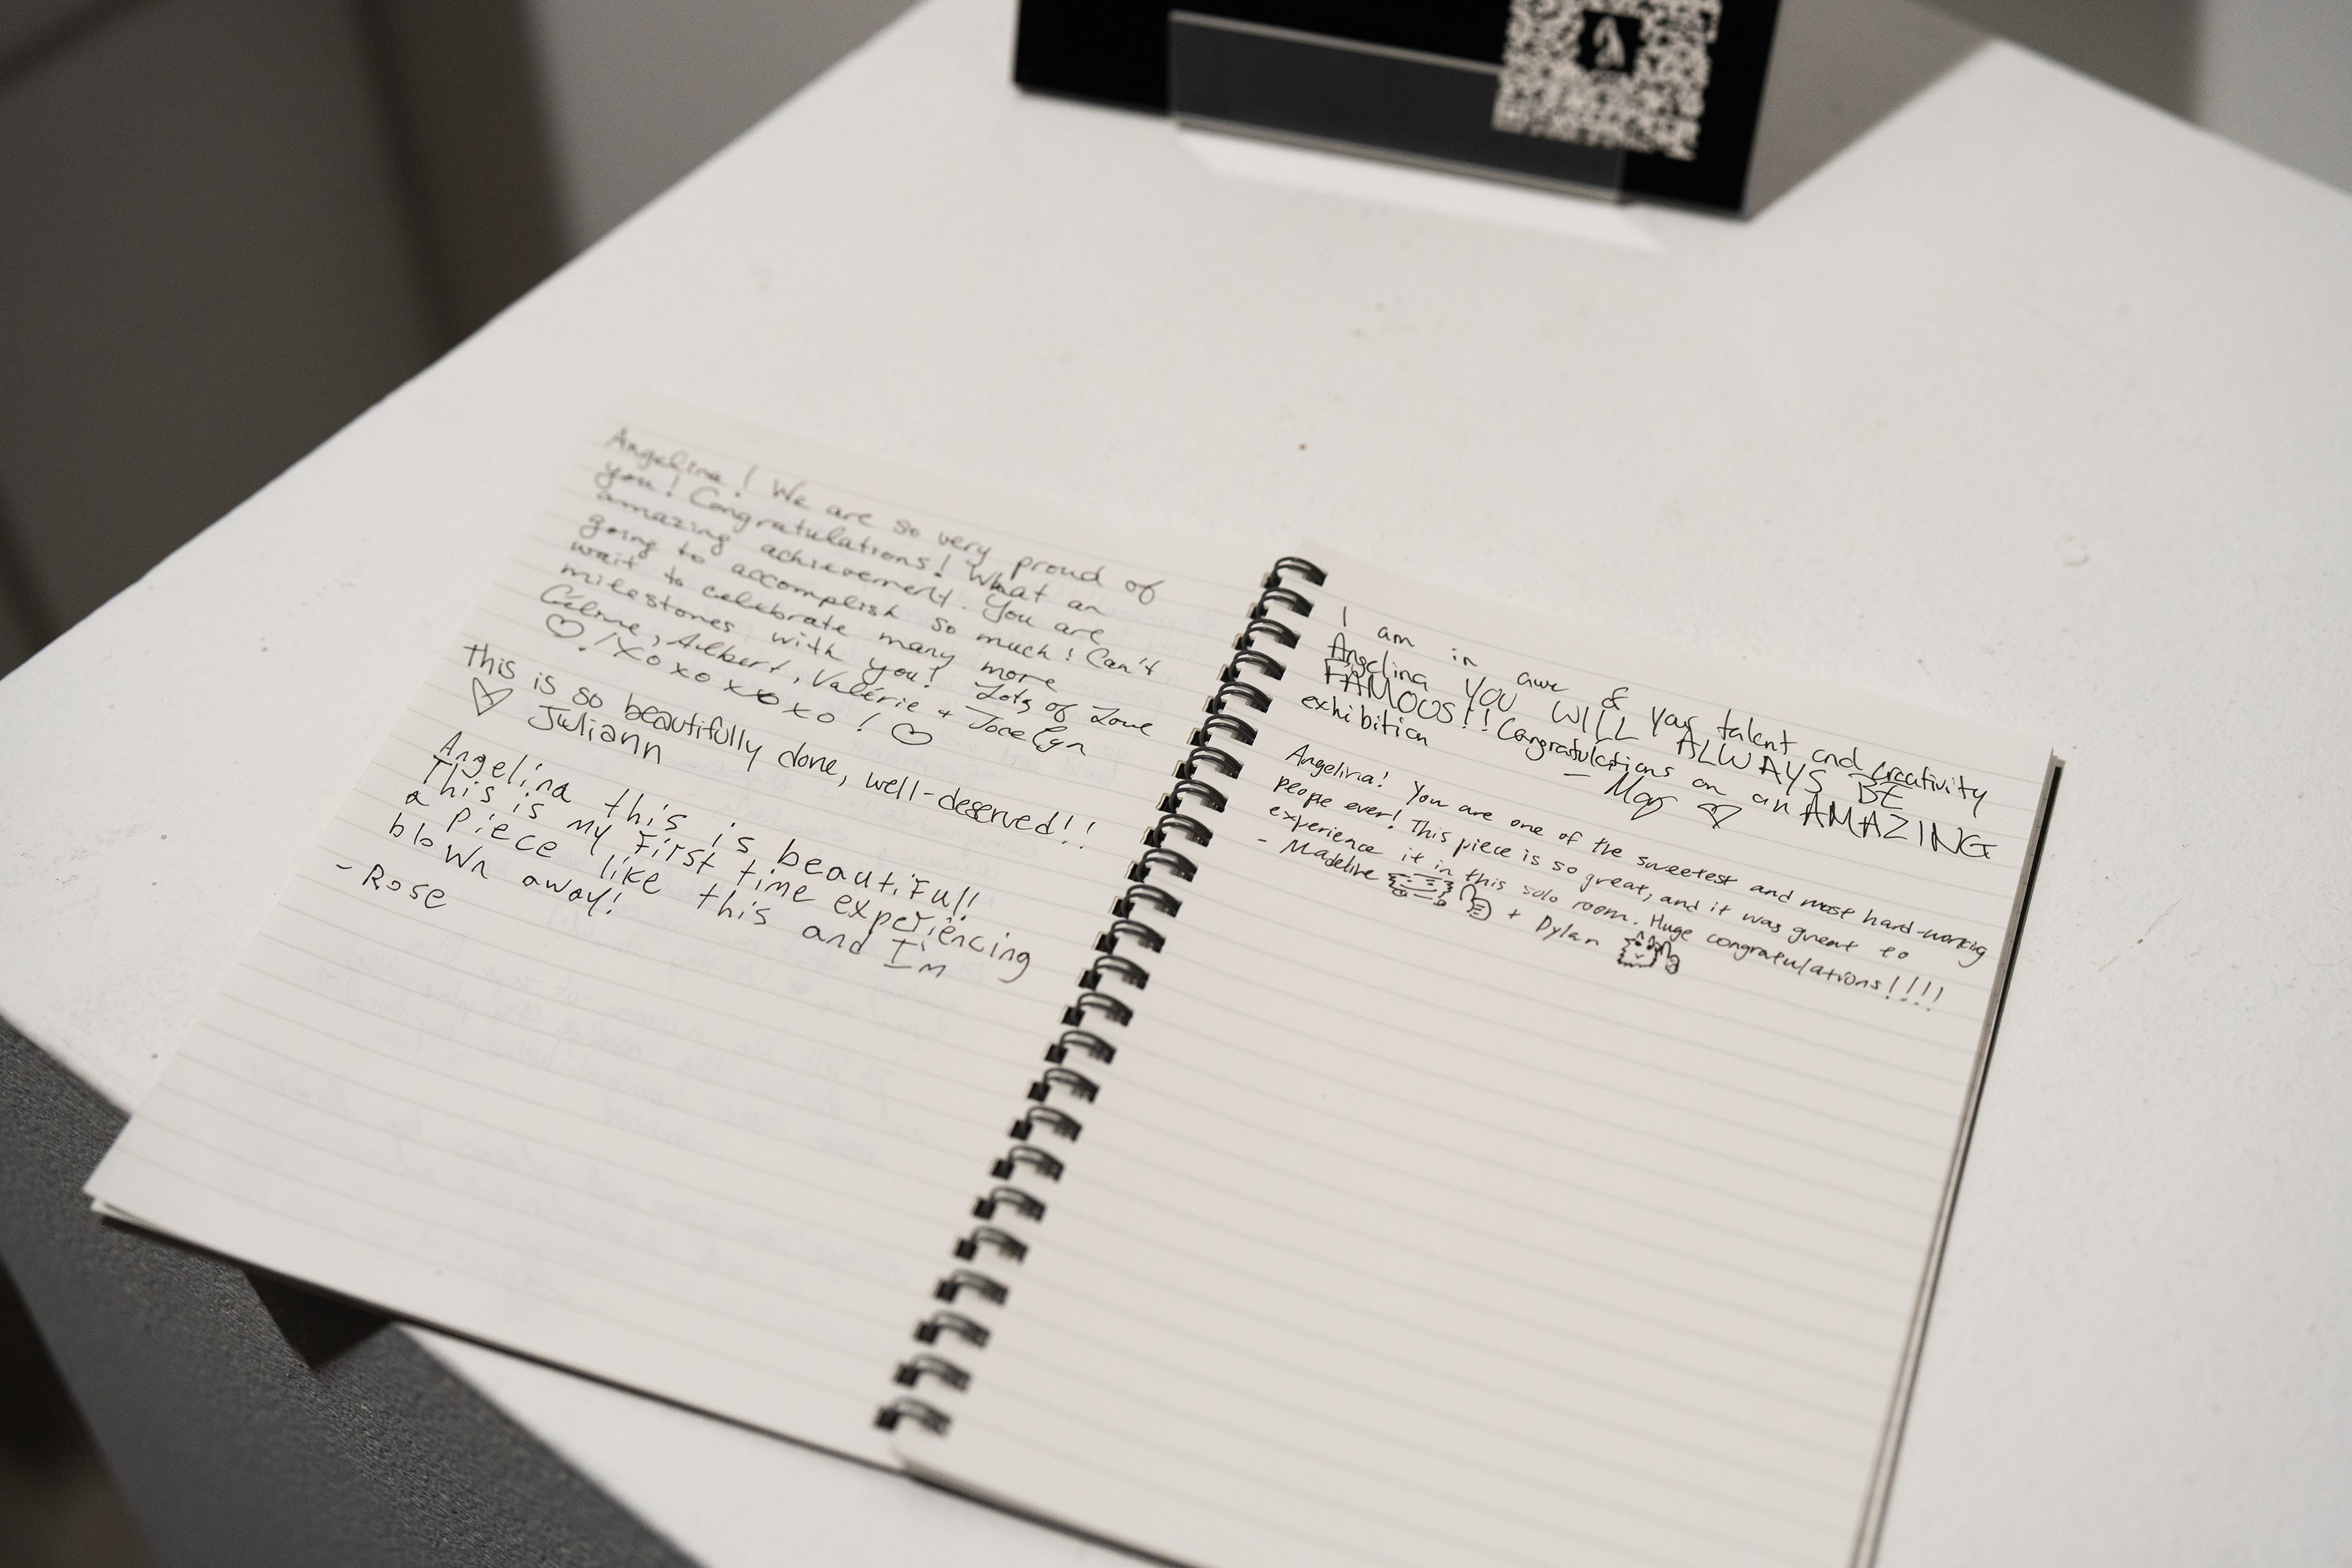 Angelina! We are so very proud of
you! Congratulations! What an
amazing achievement. You are
going to accomplish so much! Can't
wait to celebrate many more
milestones with you! Lots of Love
Celine, Albert, Valérie + Jocelyn
! Xoxoxoxoxo !
This is so beautifully done, well-deserved!!
Juliann
Angelina this is beautiful!
This is my first time experiencing
a piece like this and I'm
blown away!
- Rose
I am in awe of your talent and creativity
Angelina YOU WILL ALWAYS BE
FAMOUS!! Congratulations on an AMAZING
exhibition
Angelina! You are one of the sweetest and most hard-working
people ever! This piece is so great, and it was great to
experience it in this solo room. Huge congratulations!!!!
- Madeline + Dylan